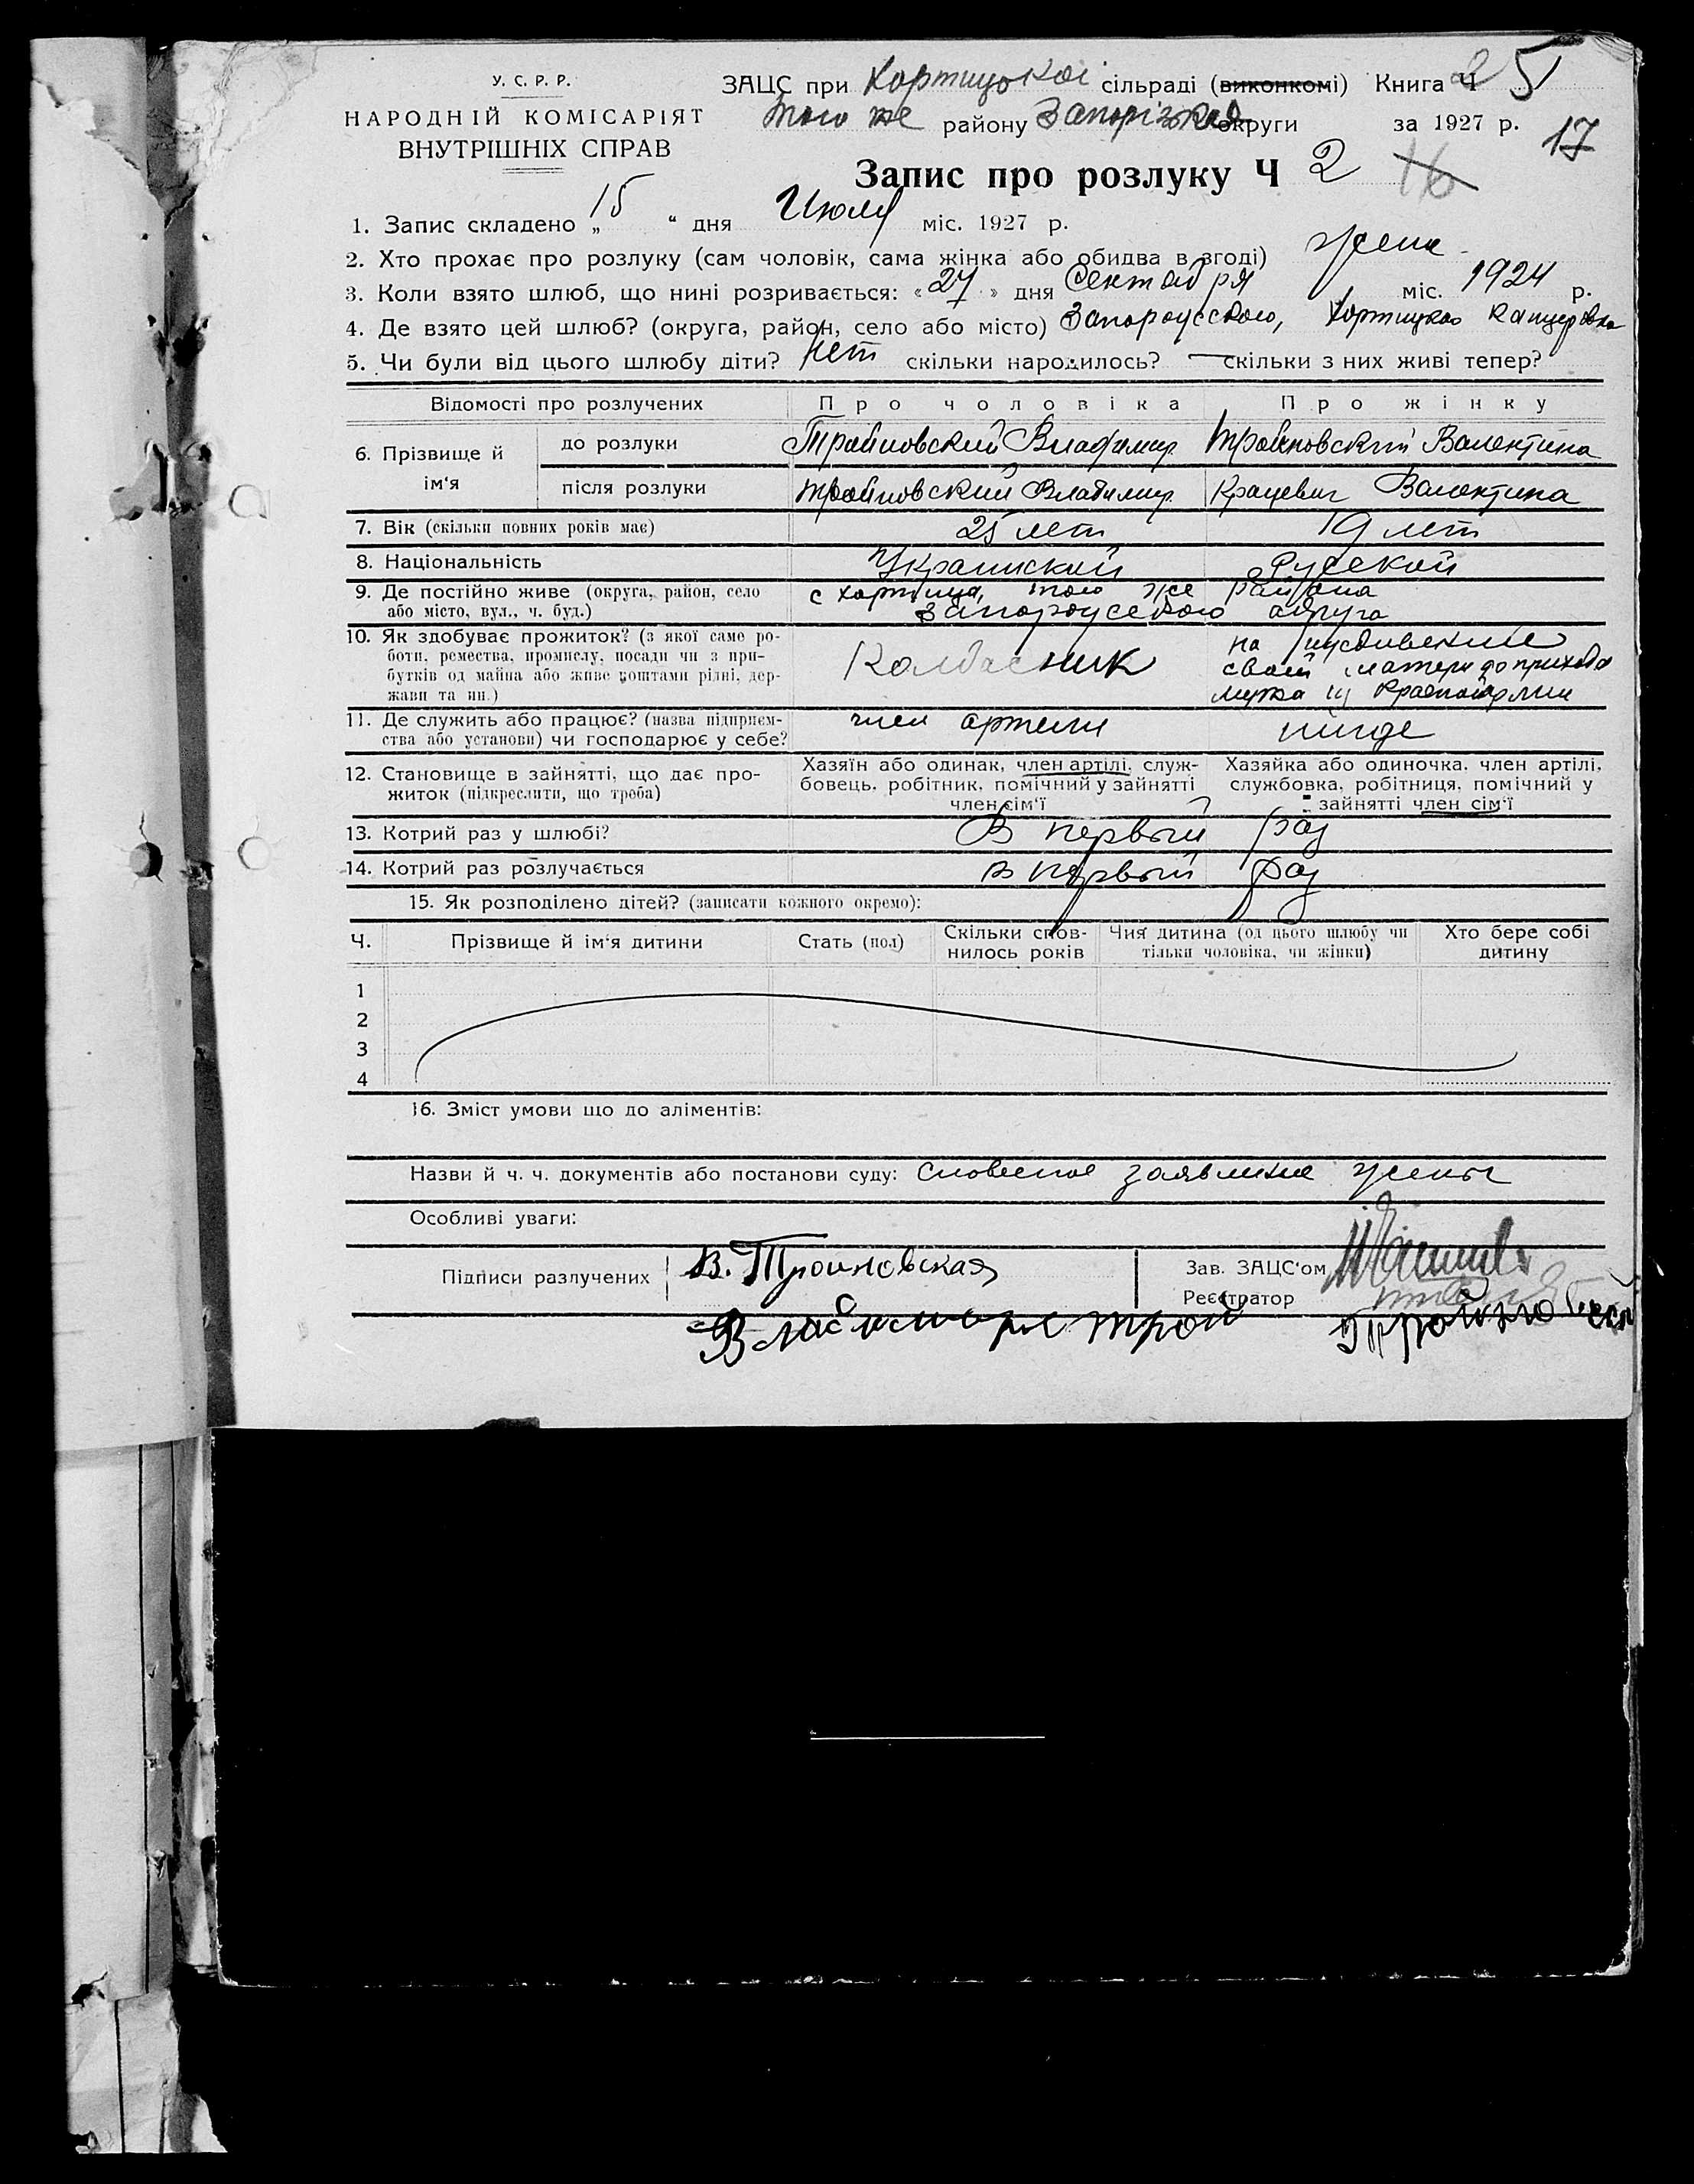 У. С. Р. Р.
НАРОДНІЙ КОМІСАРІЯТ
ВНУТРІШНІХ СПРАВ
ЗАЦС при Хортицькоі сільраді (виконкомі) Книга Ч 5
того же району Запорізької округи за 1927 р.
17
Запис про розлуку Ч 2 16
1. Запис складено „15“ дня Июля міс. 1927 р.
2. Хто прохає про розлуку (сам чоловік, сама жінка або обидва в згоді) жена
3. Коли взято шлюб, що нині розривається: «27» дня Сентября міс. 1924 р.
4. Де взято цей шлюб? (округа, район, село або місто) Запорожского, Хортицкого Канцеровка
5. Чи були від цього шлюбу діти? нет скільки народилось? — скільки з них живі тепер?
Відомості про розлучених Про чоловіка Про жінку
6. Прізвище й ім‘я до розлуки Тройновский Владимир Тройновский Валентина
після розлуки Тройновский Владимир Крацевич Валентина
7. Вік (скільки повних років має) 25 лет 19 лет
8. Національність Украинский Русский
9. Де постійно живе (округа, район, село с Хортица, того же района
або місто, вул., ч. буд.) Запорожского округа
10. Як здобуває прожиток? (з якої саме ро-
боти, ремества, промислу, посади чи з при-
бутків од майна або живе коштами рідні, дер-
жави та ин.) Колбасник на иждивении
своей матери до прихода
мужа из Красной армии
11. Де служить або працює? (назва підприєм-
ства або установи) чи господарює у себе? член артели нигде
12. Становище в зайнятті, що дає про-
житок (підкреслити, що треба)
Хазяїн або одинак, член артілі, служ-
бовець, робітник, помічний у зайнятті
член сім‘ї
Хазяйка або одиночка, член артілі,
службовка, робітниця, помічний у
зайнятті член сім‘ї
13. Котрий раз у шлюбі? В первый раз
14. Котрий раз розлучається в первый раз
15. Як розподілено дітей? (записати кожного окремо):
Ч. Прізвище й ім‘я дитини Стать (пол) Скільки спов-
нилось років Чия дитина (од цього шлюбу чи
тільки чоловіка, чи жінки) Хто бере собі
дитину
1
2
3
4
16. Зміст умови що до аліментів:
Назви й ч. ч. документів або постанови суду: словесное заявление жены
Особливі уваги:
Підписи розлучених В. Троиновская Зав. ЗАЦС‘ом
Реєстратор
Владимир Трой Тройновский